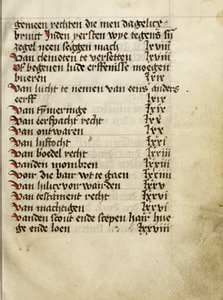 gemeen rechten die men dagelicx
bruict Inden yersten wye tegens sij
zegel neen seggen mach lxviii
Van clenoten te versetten lxviii
Of begeven lude erffenisse moegen
bueren lxix
van lucht te nemen van eens anders
eerff lxix
van tymeringe lxix
van eerfpacht recht lxx
van ontwaren lxx
van lijftocht lxxi
van boedel recht lxxiii
vanden mombren lxxiii
voer die banc wt te gaen lxxiiii
van hilic voirwairden lxxv
van testament recht lxxvi
van machtigen lxxvi
vanden scout ende scepen
ge ende loen lxxviii